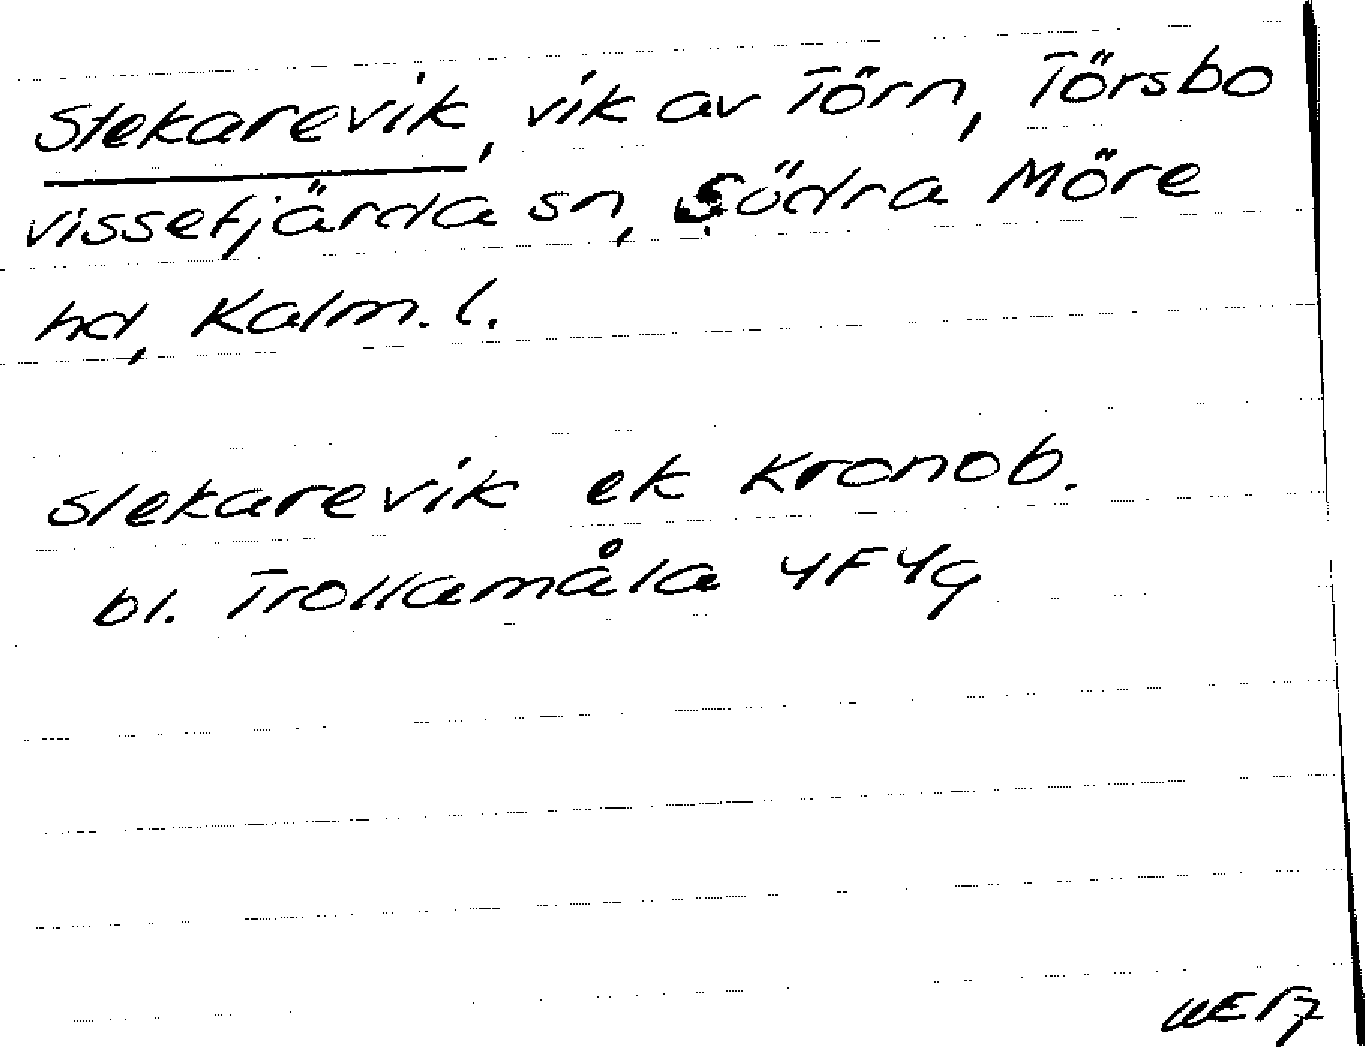 Stekarevik, vik av Törn, Törsbo
Vissefjärda sn, Södra Möre
hd, Kalm. l.
Stekarevik ek Kronob.
bl. Trollamåla 4F4g